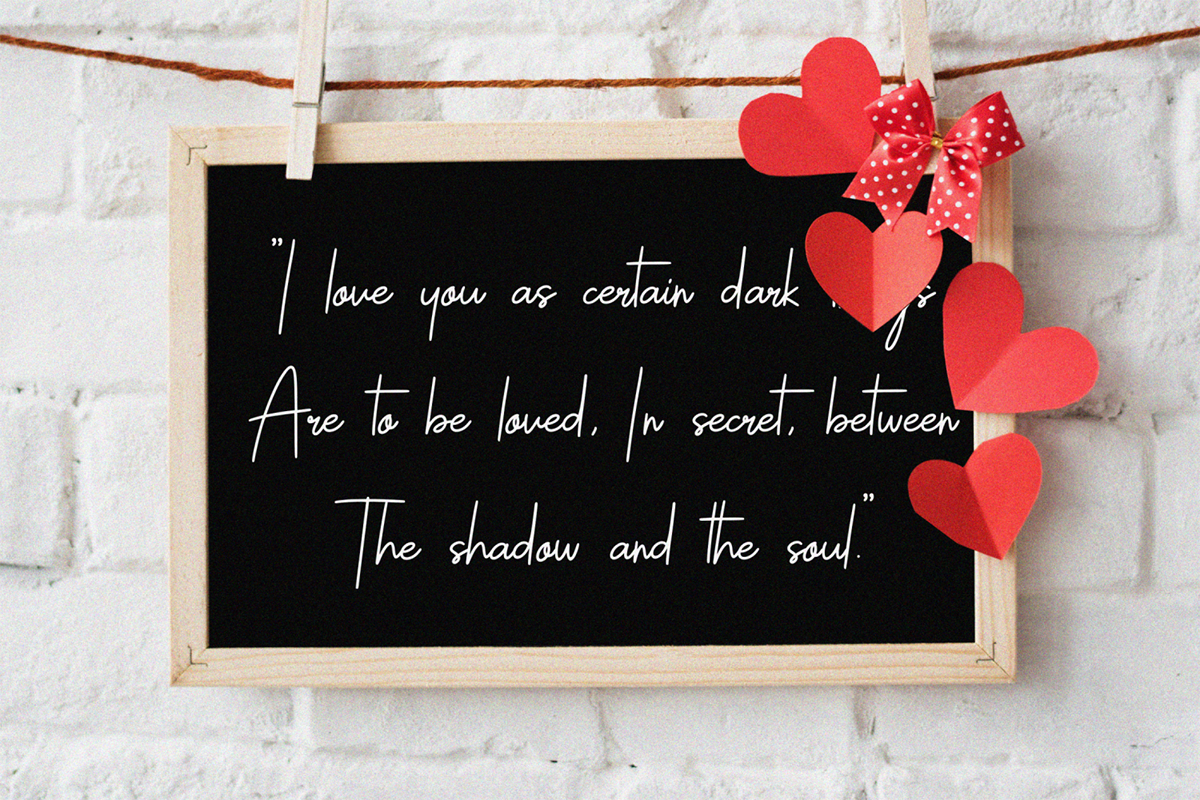 "I love you as certain dark
Are to be loved, In secret, between
The shadow and the soul."